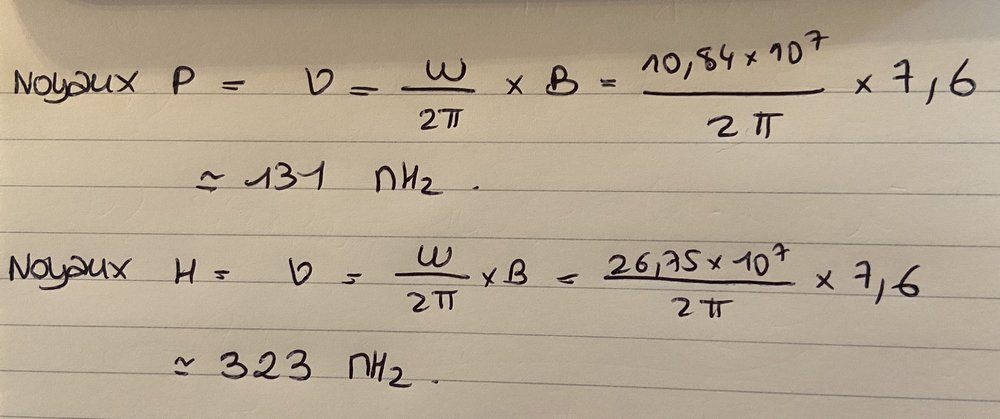 Noyaux P = ν = ω/2π × B = 10,84 × 10⁷/2π × 7,6
≃ 131 MHz.
Noyaux H = ν = ω/2π × B = 26,75 × 10⁷/2π × 7,6
≃ 323 MHz.